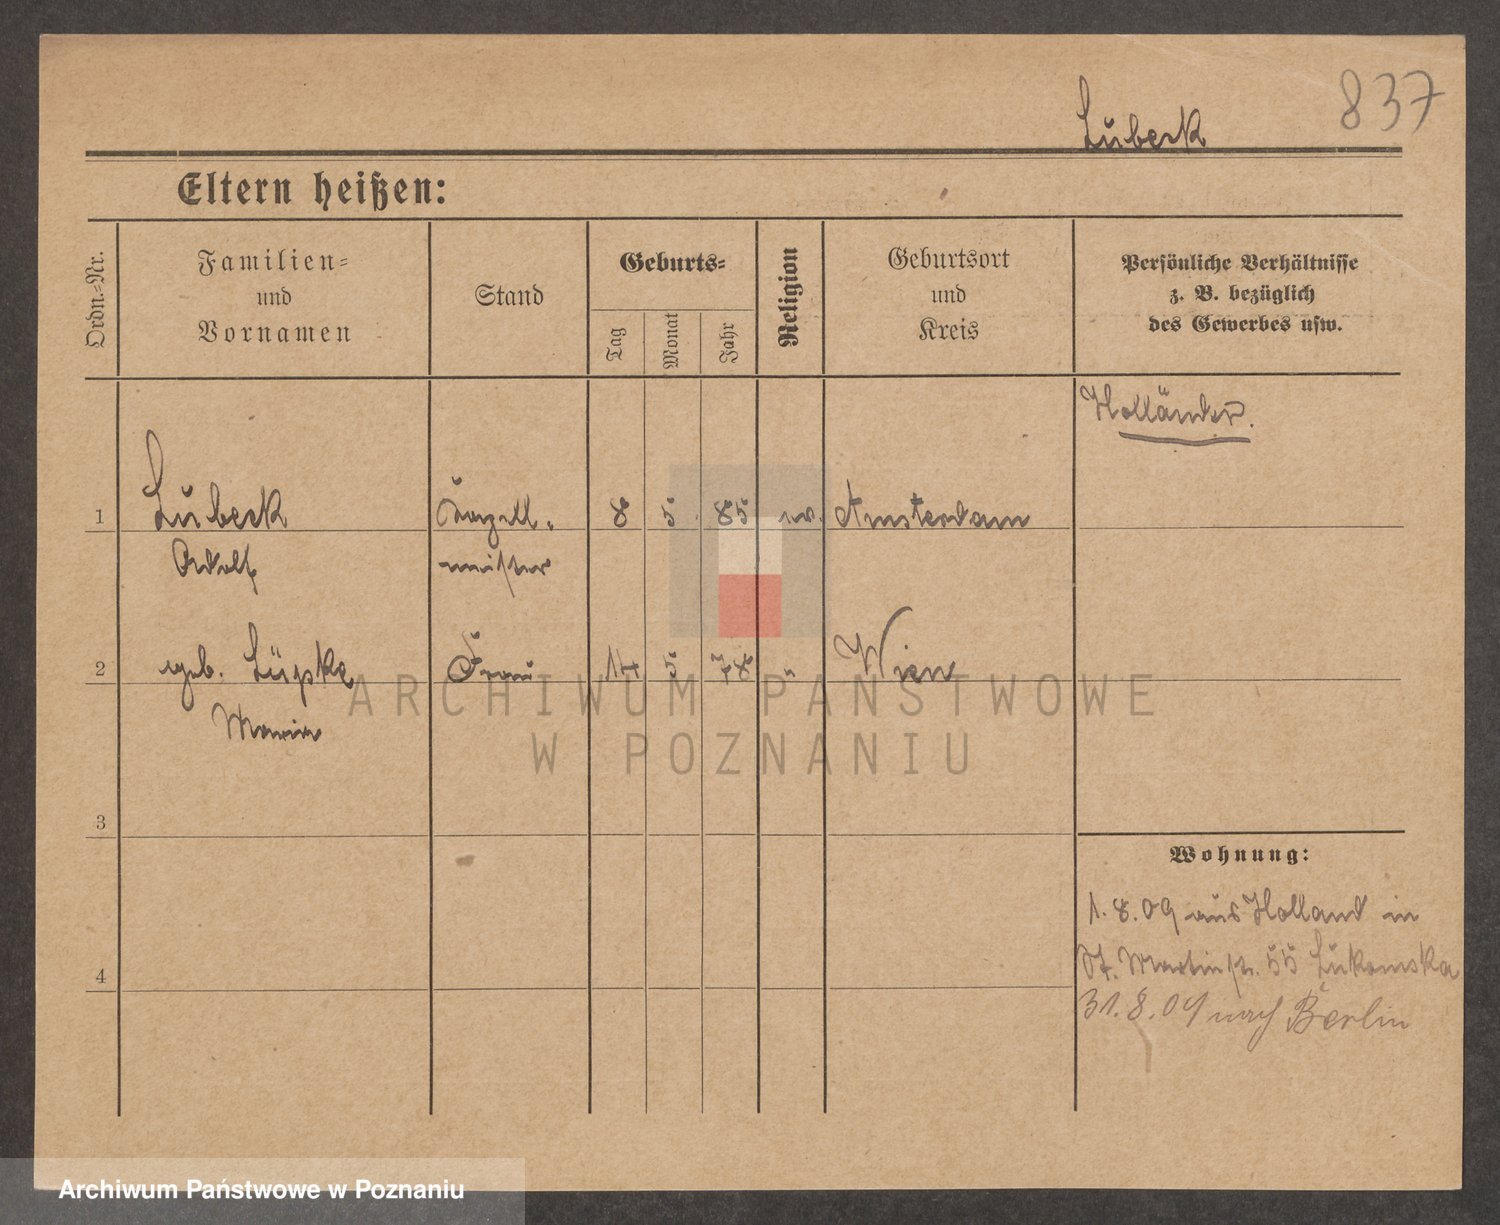 837
Lubeck
Eltern heißen:
Ordn.=Nr.
Familien=
und
Vornamen
Stand
Geburts=
Tag
Monat
Jahr
Religion
Geburtsort
und
Kreis
Persönliche Verhältnisse
z. B. bezüglich
des Gewerbes usw.
Holländer.
1 Lubeck 8 5 85 Amsterdam
Adolf meister
2 geb. Lüpke Frau 14 5 78 " Wien
Maria
3
4
Wohnung:
1.8.09 aus Holland in
St. Martinstr. 55 Lukomska
31.8.09 nach Berlin
ARCHIWUM PAŃSTWOWE
W POZNANIU
Archiwum Państwowe w Poznaniu